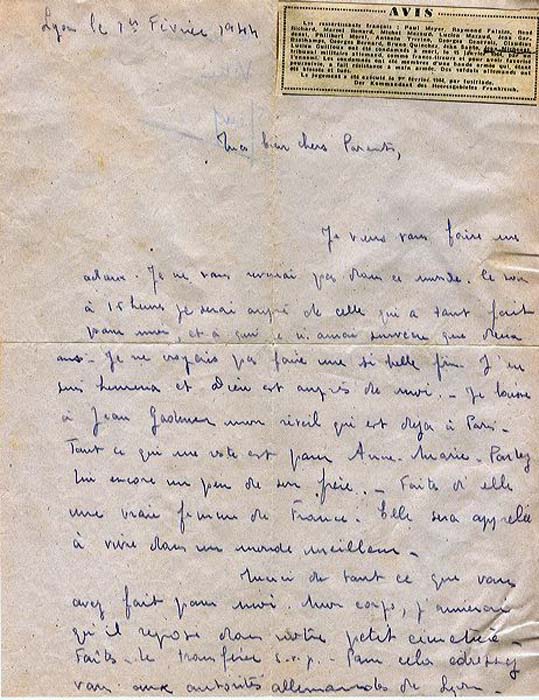 Lyon le 1er Février 1944
AVIS
Les ressortissants français : Paul Meyer, Raymond Fataiss, René
Richard, Marcel Bonard, Michel
Philibert
Georges Bernard, Bruno Quincher, Jean
Lucien Guilloux ont été condamnés à mort, le 15
tribunal militaire allemand, comme francs-tireurs et pour avoir favorisé
l'ennemi. Les condamnés ont été membres d'une bande de terroristes qui
poursuivie, a fait résistance à main armée. Des soldats allemands ont
été blessés et tués.
Le jugement a été exécuté le 1er février 1944, par fusillade.
Der Kommandant des Heeresgebietes Frankreich.
Mes bien chers Parents,
Je viens vous faire mes
adieux. Je ne vous reverrai pas dans ce monde. Ce soir
à 15 heures je serai auprès de celle qui a tant fait
pour moi, et à qui je n'aurai survécu que deux
ans. Je ne croyais pas faire une si belle fin. J'en
suis heureux et Dieu est auprès de moi. - Je laisse
à Jean mon réveil qui est déjà à Paris -
Tout ce qui me reste est pour Anne-Marie. Parlez
lui encore un peu de son frère. - Faites d'elle
une vraie femme de France. Elle sera appelée
à vivre dans un monde meilleur -
Merci de tout ce que vous
avez fait pour moi. Mon corps, j'aimerais
qu'il repose dans votre petit cimetière
Faites-le transférer s.v.p. - Pour cela adressez
vous aux autorités allemandes de Lyon -